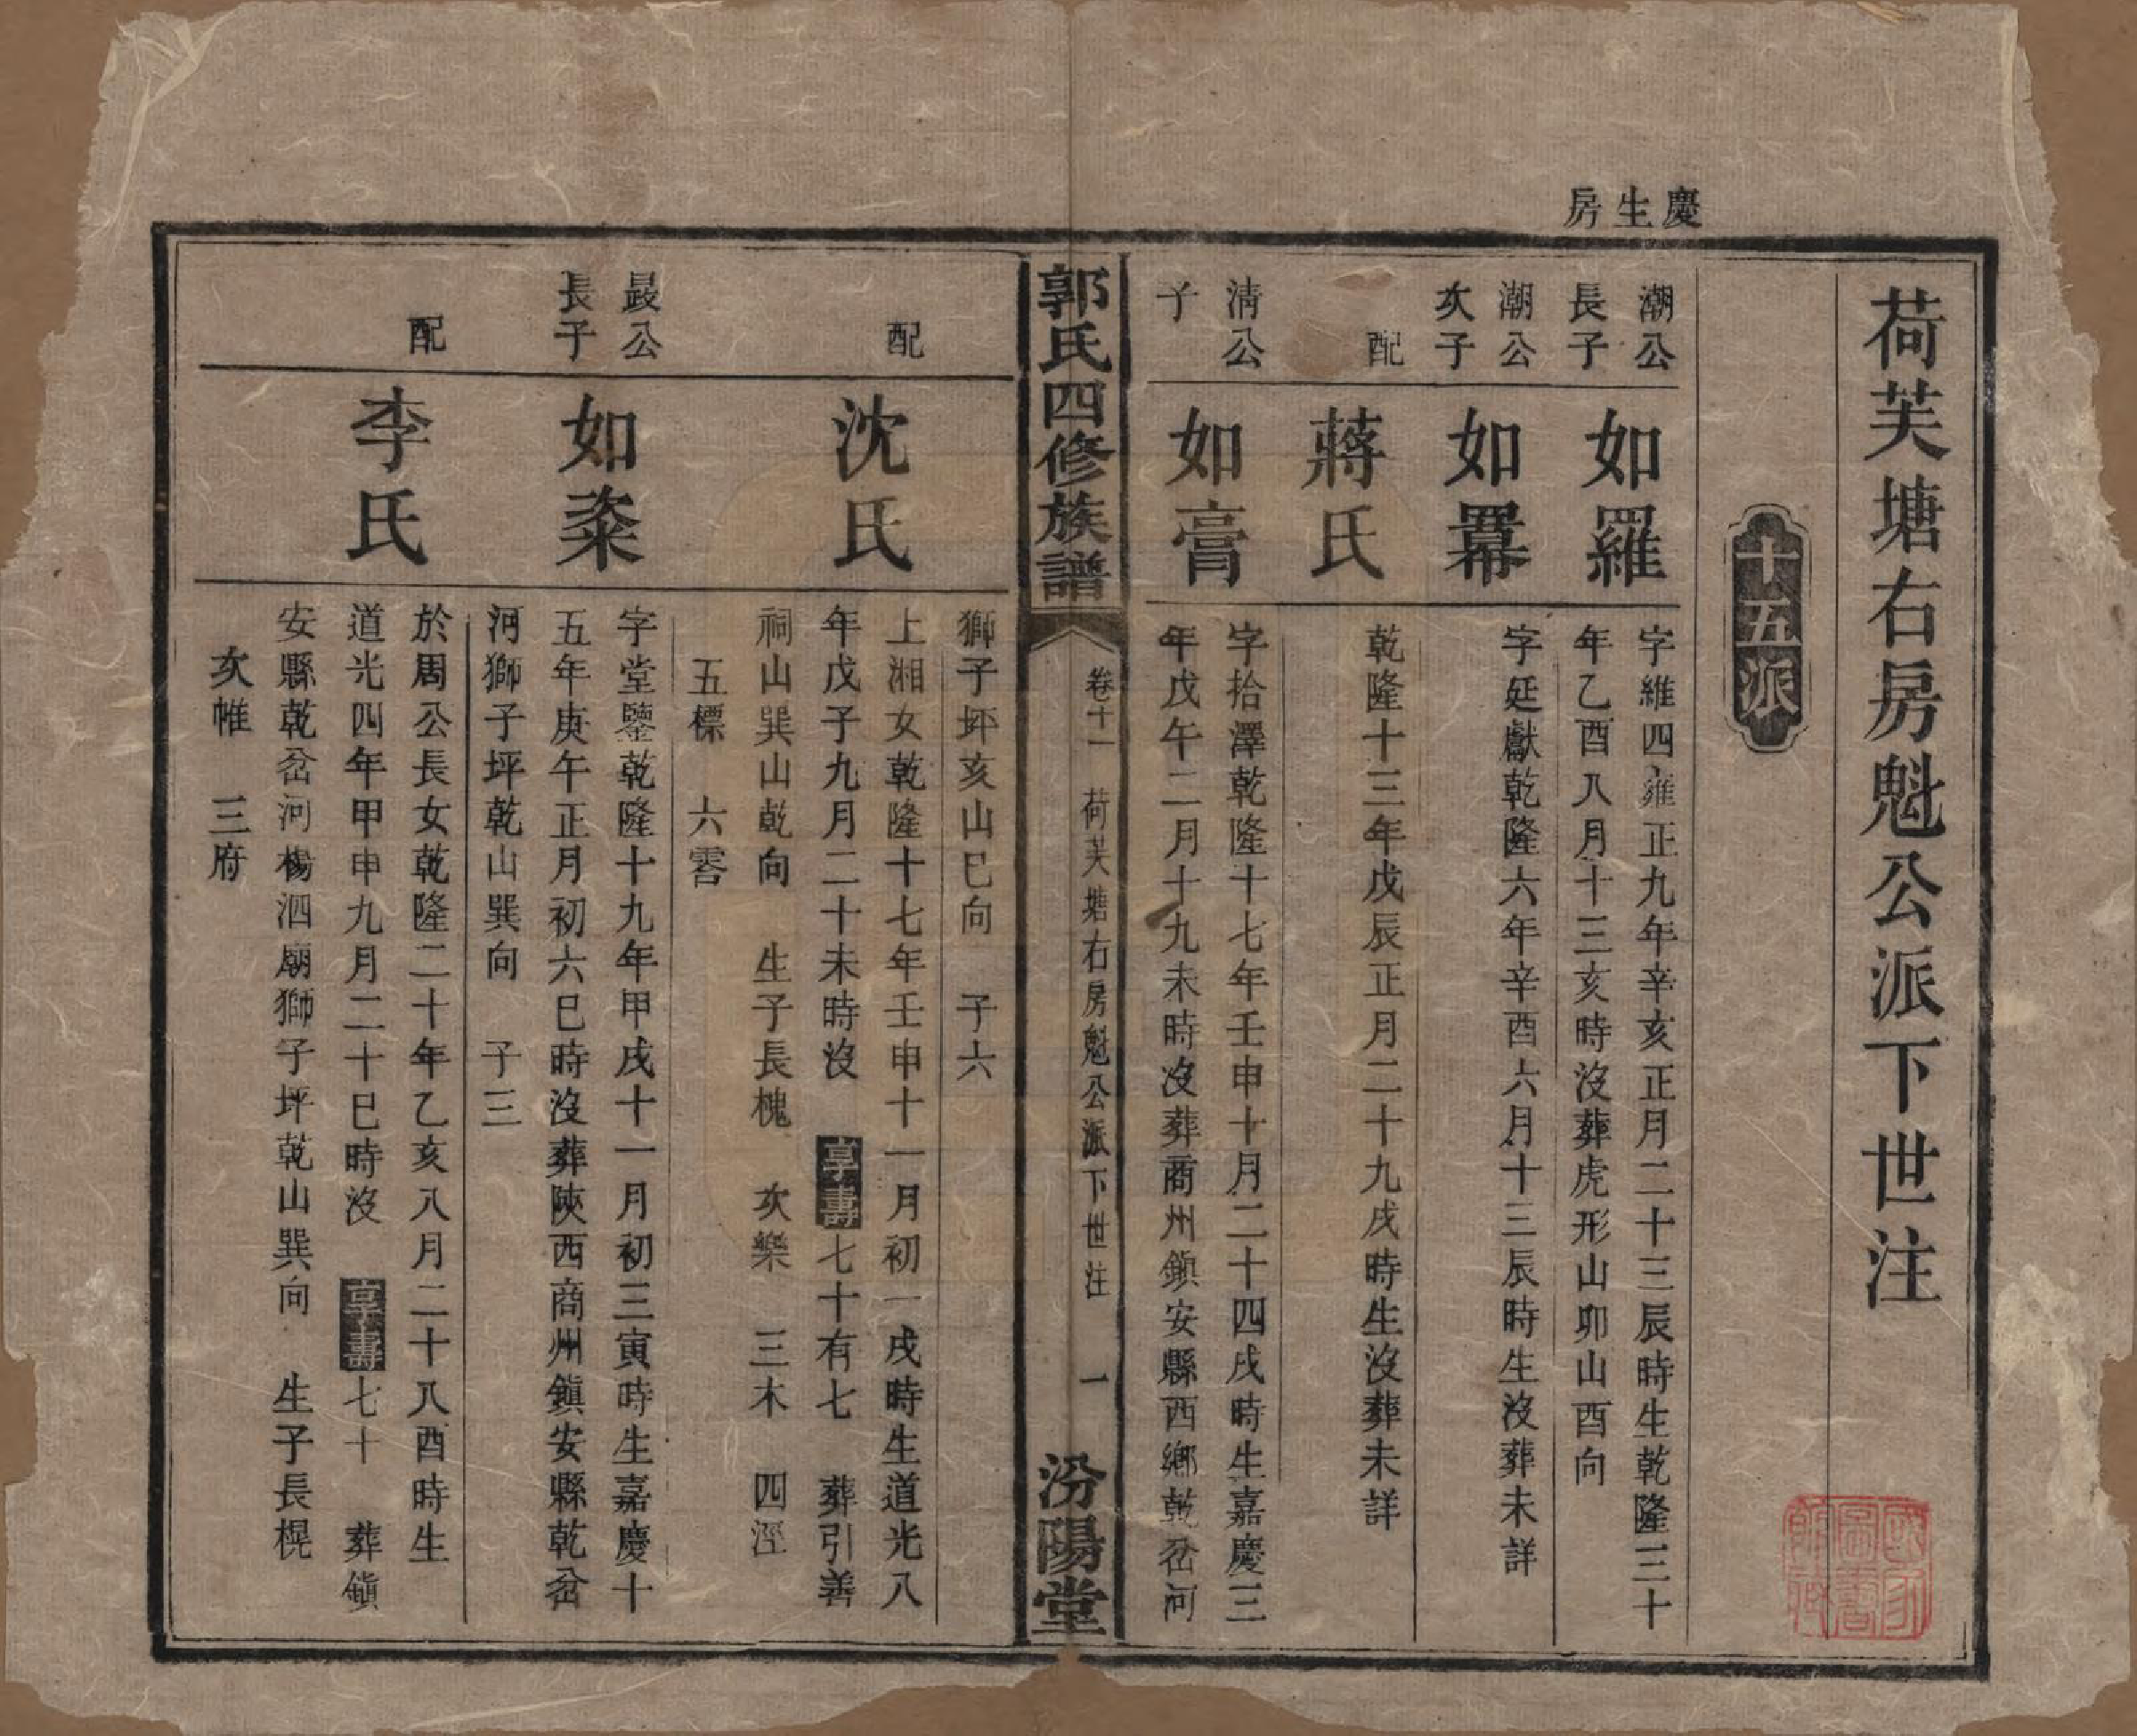 慶生房
荷芙塘右房魁公派下世注
十五派
潮公
長子
如羅
字維四雍正九年辛亥正月二十三辰時生乾隆三十
年乙酉八月十三亥時沒葬虎形山卯山酉向
潮公
次子
如羃
字廷獻乾隆六年辛酉六月十三辰時生沒葬未詳
配
蔣氏
乾隆十三年戊辰正月二十九戌時生沒葬未詳
清公
子
如膏
字拾澤乾隆十七年壬申十月二十四戌時生嘉慶三
年戊午二月十九未時沒葬商州鎮安縣西鄉乾岔河
郭氏四修族譜
卷十一
荷芙塘右房魁公派下世注
一
汾陽堂
獅子坪亥山巳向 子六
配
沈氏
上湘女乾隆十七年壬申十一月初一戌時生道光八
年戊子九月二十未時沒 享壽七十有七 葬引善
祠山巽山乾向 生子長槐 次樂 三木 四涇
五標 六
公
長子
如粢
字堂鑒乾隆十九年甲戌十一月初三寅時生嘉慶十
五年庚午正月初六巳時沒葬陝西商州鎮安縣乾岔
河獅子坪乾山巽向 子三
配
李氏
於周公長女乾隆二十年乙亥八月二十八酉時生
道光四年甲申九月二十巳時沒 享壽七十 葬鎮
安縣乾岔河楊泗廟獅子坪乾山巽向 生子長榥
次帷 三府